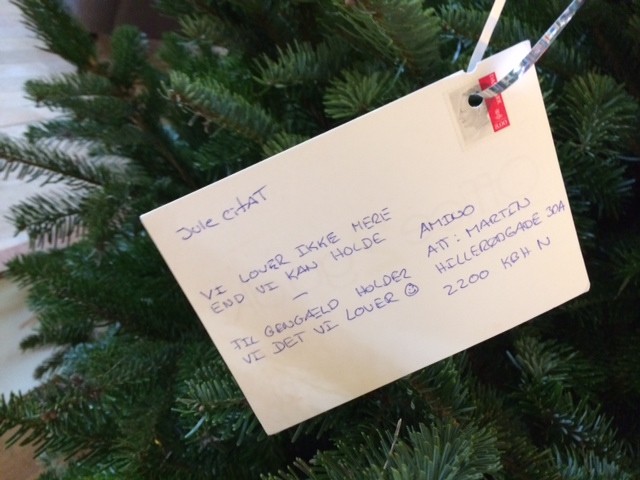 Jule citAT
VI LOVER IKKE MERE
END VI KAN HOLDE
—
TIL GENGÆLD HOLDER
VI DET VI LOVER ☺
AMINO
ATT: MARTIN
HILLERØDGADE 30A
2200 KBH N